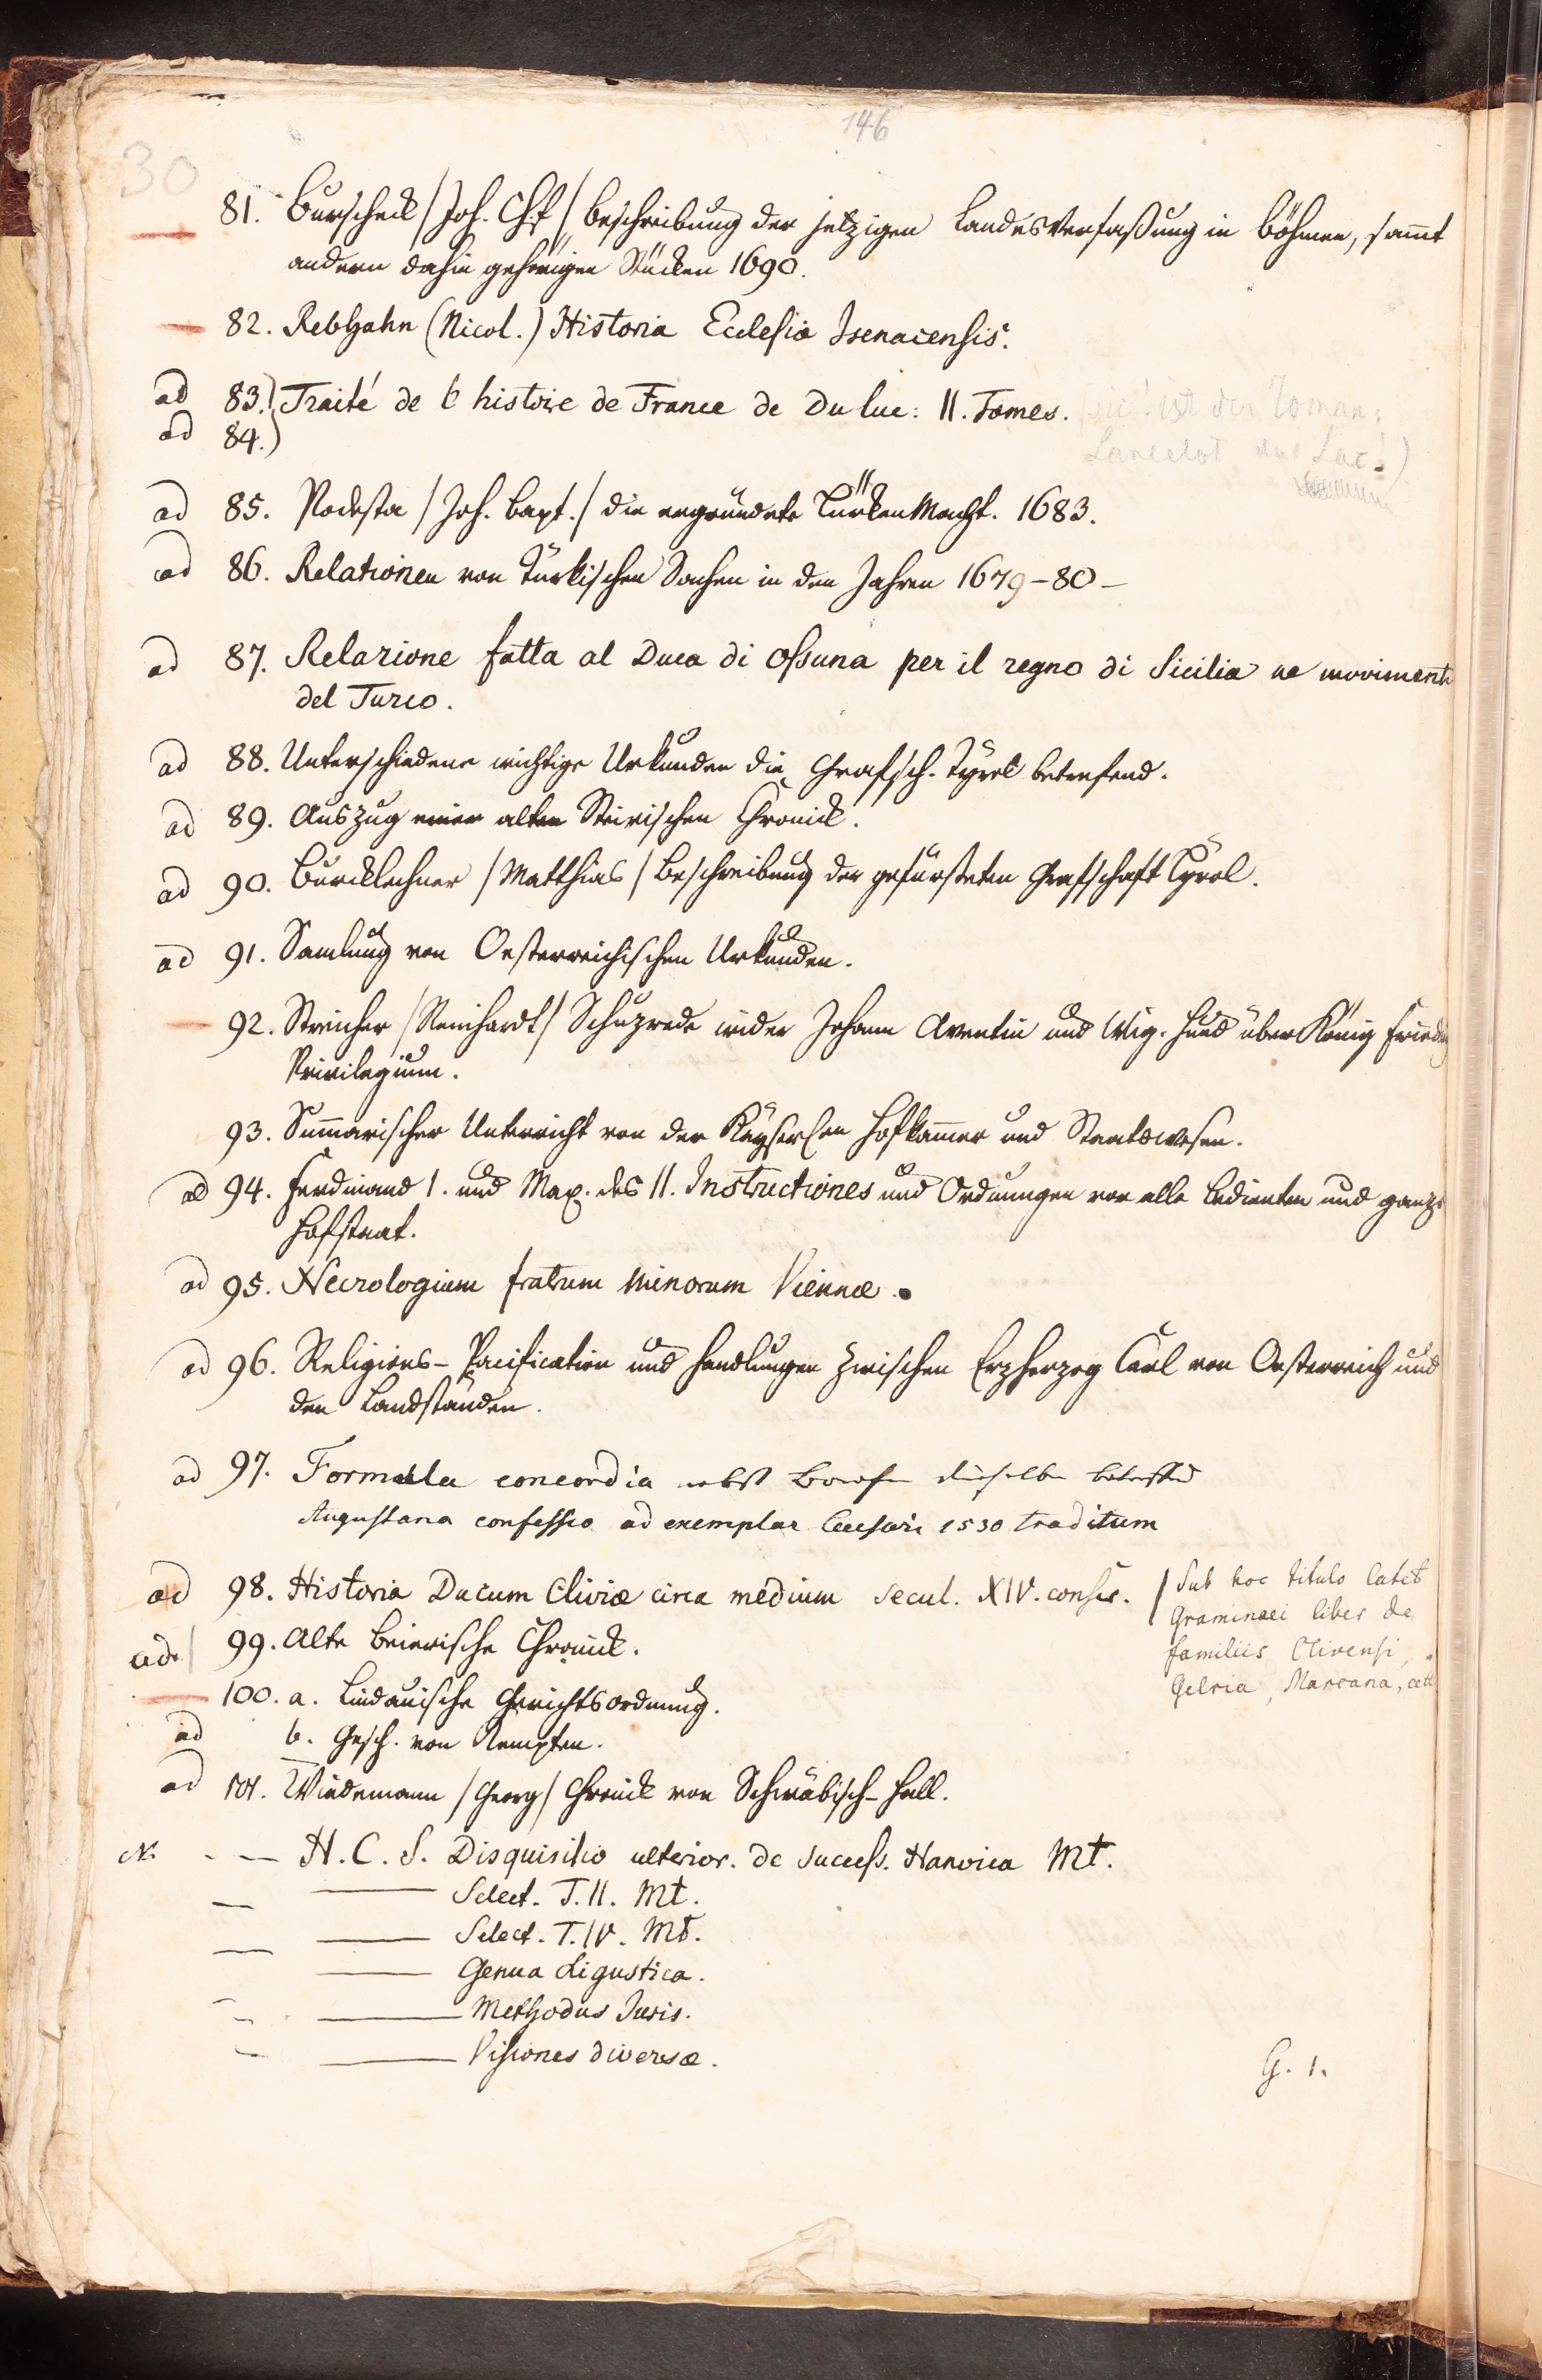 146
30
81. Burscheck /Joh. Chſt/ Beschreibung der jetzigen Landesverfaßung in Böhmen, sam̄t
andern dahin gehörigen Stücken 1690.
82. Rebhahn (Nicol.) Historia Ecclesiæ Isenacensis.
ad 83.) Traité de l histoire de France de Du luc: II. Tomes. (sic! ist der Roman:
ad 84.) Lancelot du Lac!)
ad 85. Podesta /Joh. Bapt./ die ergründete Türken Macht. 1683.
ad 86. Relationen von Türkischen Sachen in den Jahren 1679-80-
ad 87. Relazione fatta al Duca di Ossuna per il regno di Sicilia ne movimenti
del Turco.
ad 88. Unterschiedene wichtige Urkunden die Grafsch. Tÿrol betrefend.
ad 89. Auszug einer alten Steirischen Chronick.
ad 90. Burcklechner /Matthias/ Beschreibung der gefürsteten Grafschaft Tÿrol.
ad 91. Samlung von Oesterreichischen Urkunden.
92. Streicher /Reinhardt/ Schuzrede wider Johann Aventin und Wig. Hund über König Friedr
Privilegium.
93. Sum̄arischer Unterricht von der Kaÿserlen Hofkam̄er und Staatswesen.
ad 94. Ferdinand I. und Max. des II. Instructiones und Ordnungen vor alle Bedienten und ganze
Hofstaat.
ad 95. Necrologium fratrum minorum Viennæ.
ad 96. Religions-Pacification und Handlungen zwischen Erzherzog Carl von Oesterreich und
den Landständen.
ad 97. Formula concordia nebst dieselbe betreffend
Augustana confessio ad exemplar Caesari 1530 traditum
ad 98. Historia Ducum Cliviæ circa medium secul. XIV. conscr. / Sub hoc titulo latet
Graminaei liber de
familiis Clivensi,
Gelria, Marcana, cett
ad. 99. Alte Beierische Chronick.
100. a. Lindauische Gerichtsordnung.
ad b. Gesch. von Kempten.
ad 101. Wiedemann /Georg/ Chronick von Schwäbisch-Hall.
N. - — H. C. S. Disquisitio ulterior. de success. Hanoica Mt.
— — Select. T. II. Mt.
— — Select. T. IV. Mt.
— Genua Ligustica.
— — Methodus Iuris.
— — Visiones diversæ.
G. 1.